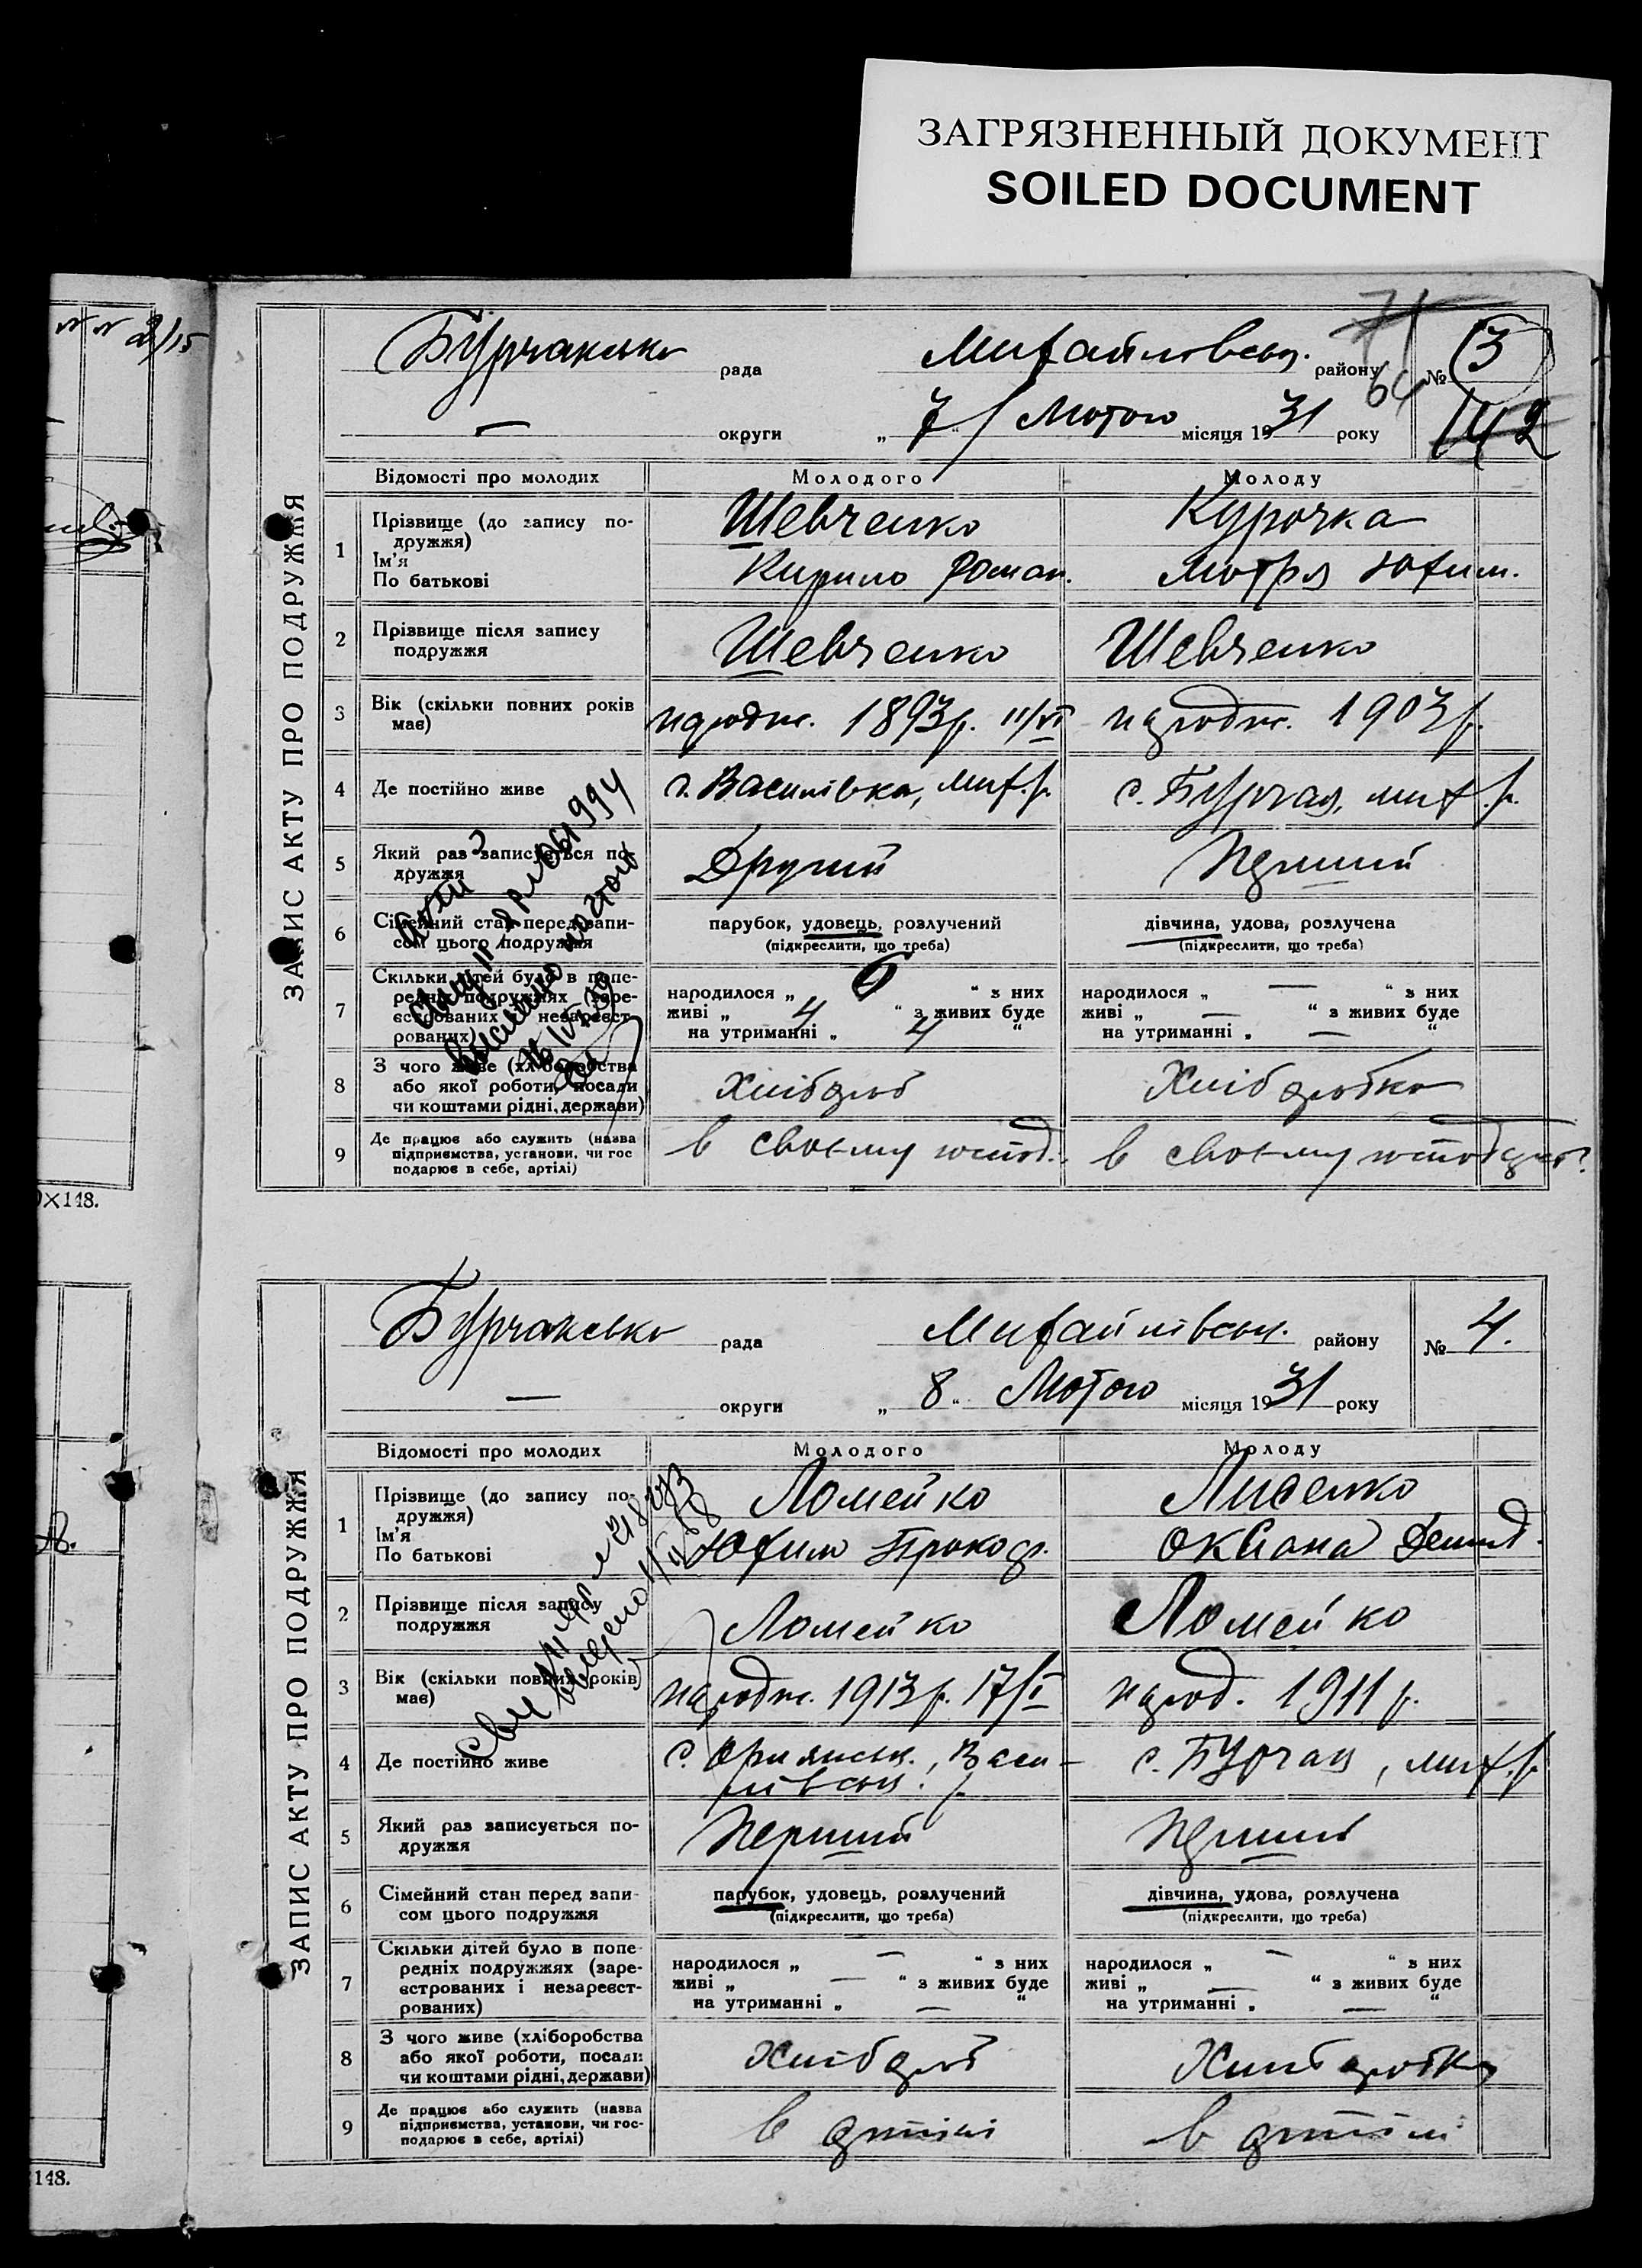 ЗАГРЯЗНЕННЫЙ ДОКУМЕНТ
SOILED DOCUMENT
Бурчаксько рада Михайловськ. району № 3
— округи „ 7 “ Лютого місяця 1931 року 142
71
64
ЗАПИС АКТУ ПРО ПОДРУЖЖЯ
Відомості про молодих Молодого Молоду
1 Прізвище (до запису по-
дружжя)
Ім'я
По батькові
Шевченко
Кирило Роман.
Курочка
Мотря Юхим.
2 Прізвище після запису
подружжя
Шевченко Шевченко
3 Вік (скільки повних років
має)
народж. 1893 р. 11/VI народж. 1903 р.
4 Де постійно живе с. Василівка, мих. р. с. Бурчак, мих. р.
5 Який раз записується по-
дружжя
Другий Перший
6 Сімейний стан перед запи-
сом цього подружжя
парубок, удовець, розлучений
(підкреслити, що треба)
дівчина, удова, розлучена
(підкреслити, що треба)
7 Скільки дітей було в попе-
редніх подружжях (заре-
єстрованих і незареєст-
рованих)
народилося „ 6 “ з них
живі „ 4 “ з живих буде
на утриманні „ 4 “
народилося „ — “ з них
живі „ — “ з живих буде
на утриманні „ — “
8 З чого живе (хліборобства
або якої роботи, посади
чи коштами рідні, держави)
Хлібороб Хліборобка
9 Де працює або служить (назва
підприємства, установи, чи гос
подарює в себе, артілі)
в своєму господ. в своєму господар.
×148.
Бурчаксько рада Михайлівськ. району № 4.
— округи „ 8 “ Лютого місяця 1931 року
ЗАПИС АКТУ ПРО ПОДРУЖЖЯ
Відомості про молодих Молодого Молоду
1 Прізвище (до запису по-
дружжя)
Ім'я
По батькові
Ломейко
Юхим Прокоф.
Лисенко
Оксана Демид.
2 Прізвище після запису
подружжя
Ломейко Ломейко
3 Вік (скільки повних років
має)
народж. 1913 р. 17/I народ. 1911 р.
4 Де постійно живе с. Орлянськ., Васи-
лівськ. р.
с. Бурчак, мих. р.
5 Який раз записується по-
дружжя
Перший Перший
6 Сімейний стан перед запи-
сом цього подружжя
парубок, удовець, розлучений
(підкреслити, що треба)
дівчина, удова, розлучена
(підкреслити, що треба)
7 Скільки дітей було в попе-
редніх подружжях (заре-
єстрованих і незареєст-
рованих)
народилося „ — “ з них
живі „ — “ з живих буде
на утриманні „ — “
народилося „ — “ з них
живі „ — “ з живих буде
на утриманні „ — “
8 З чого живе (хліборобства
або якої роботи, посади
чи коштами рідні, держави)
Хлібороб Хліборобка
9 Де працює або служить (назва
підприємства, установи, чи гос-
подарює в себе, артілі)
в артілі в артілі
148.